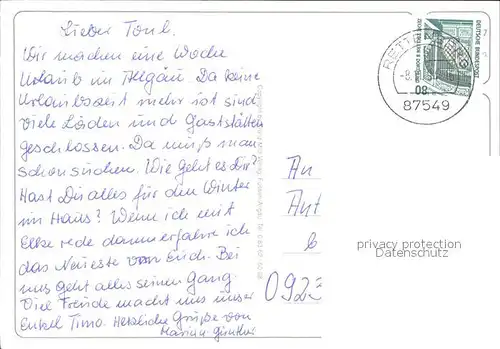 Lieber Toni.
Wir machen eine Woche
Urlaub im Allgäu. Da keine
Urlaubszeit mehr ist sind
viele Läden und Gaststätten
geschlossen. Da muß man
schon suchen. Wie geht es dir?
Hast Du alles für den Winter
im Haus? Wenn ich mit
Elke rede dann erfahre ich
das Neueste von Euch. Bei
uns geht alles seinen Gang
Viel Freude macht uns unser
Enkel Timo. Herzliche Grüße von
Marian Günther
An
DEUTSCHE BUNDESPOST
08
87549
privacy protection
Datenschutz